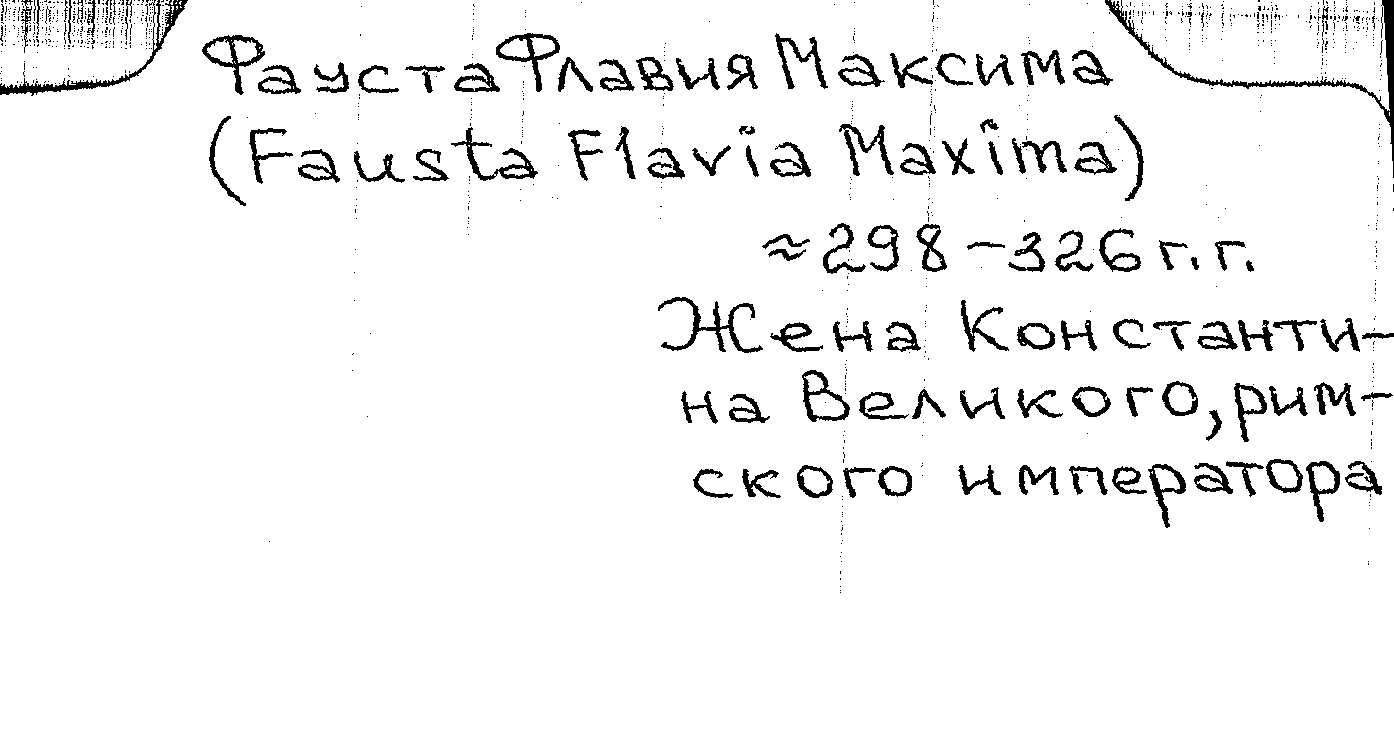 Фауста Флавия Максима
(Fausta Flavia Maxima)
≈298-326 г.г.
Жена Константи-
на Великого, рим-
ского императора